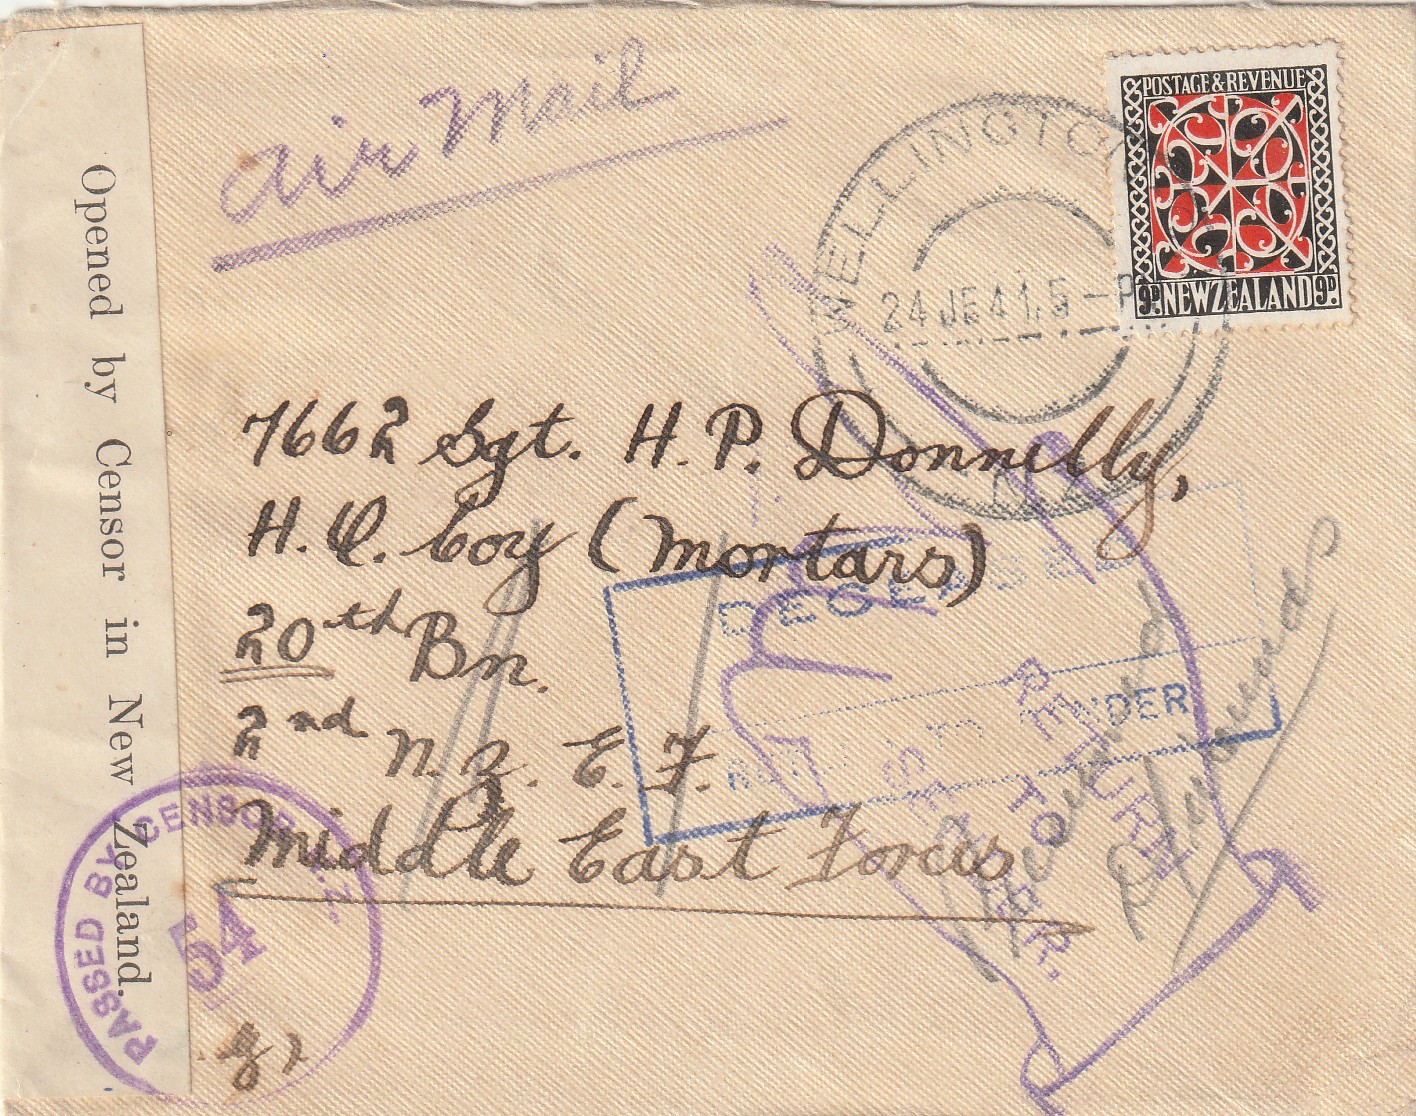 Opened by Censor in New Zealand.
air mail
POSTAGE & REVENUE
9D. NEW ZEALAND 9D.
WELLINGTON
24 JE 41. 5 - P
N.Z.
7662 Sgt. H. P. Donnelly,
H. Q. Coy (Mortars)
20th Bn.
2nd N. Z. E. F.
Middle East Forces
DECEASED
SENDER
RETURN
TO
SENDER.
PASSED BY CENSOR N.Z.
54